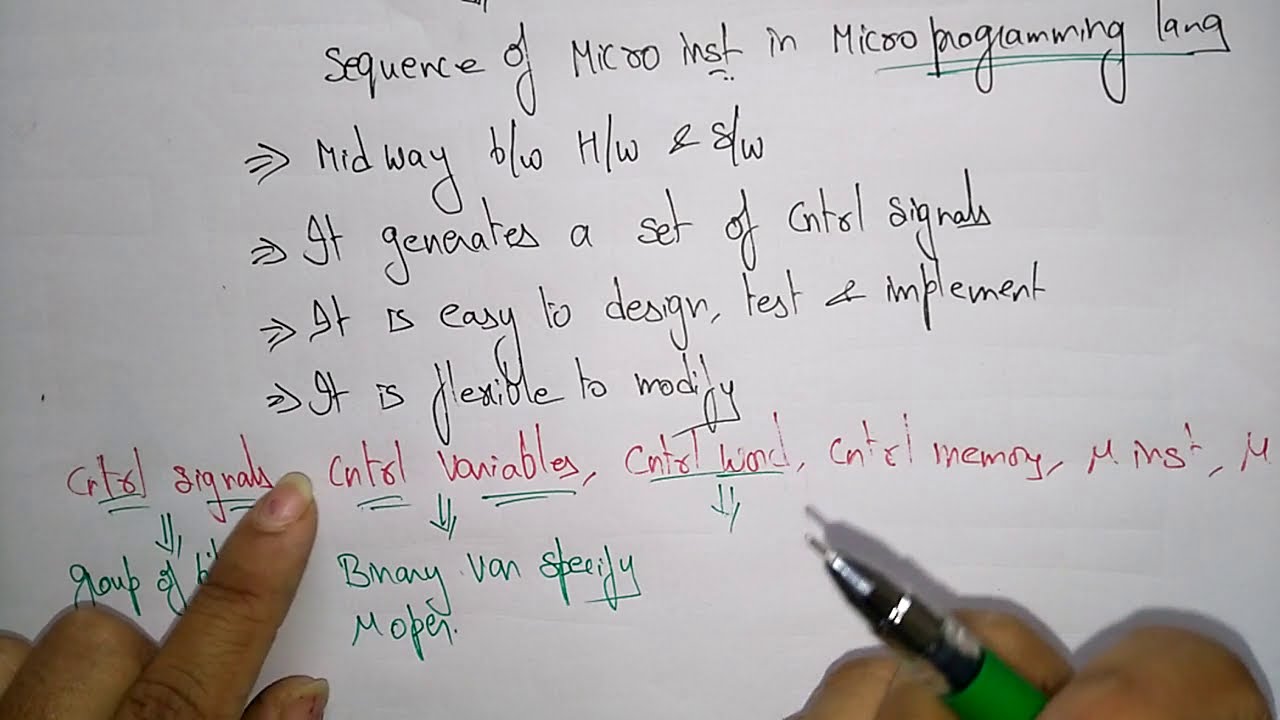 Sequence of Micro inst in Microprogramming lang
⇒ Midway b/w H/w & S/w
⇒ It generates a set of Cntrl signals
⇒ It is easy to design, test & implement
⇒ It is flexible to modify
Cntrl signals Cntrl Variables, Cntrl word, Cntrl memory, μ inst, μ
⇓ ⇓ ⇓
group of Binary var specify
μ oper.